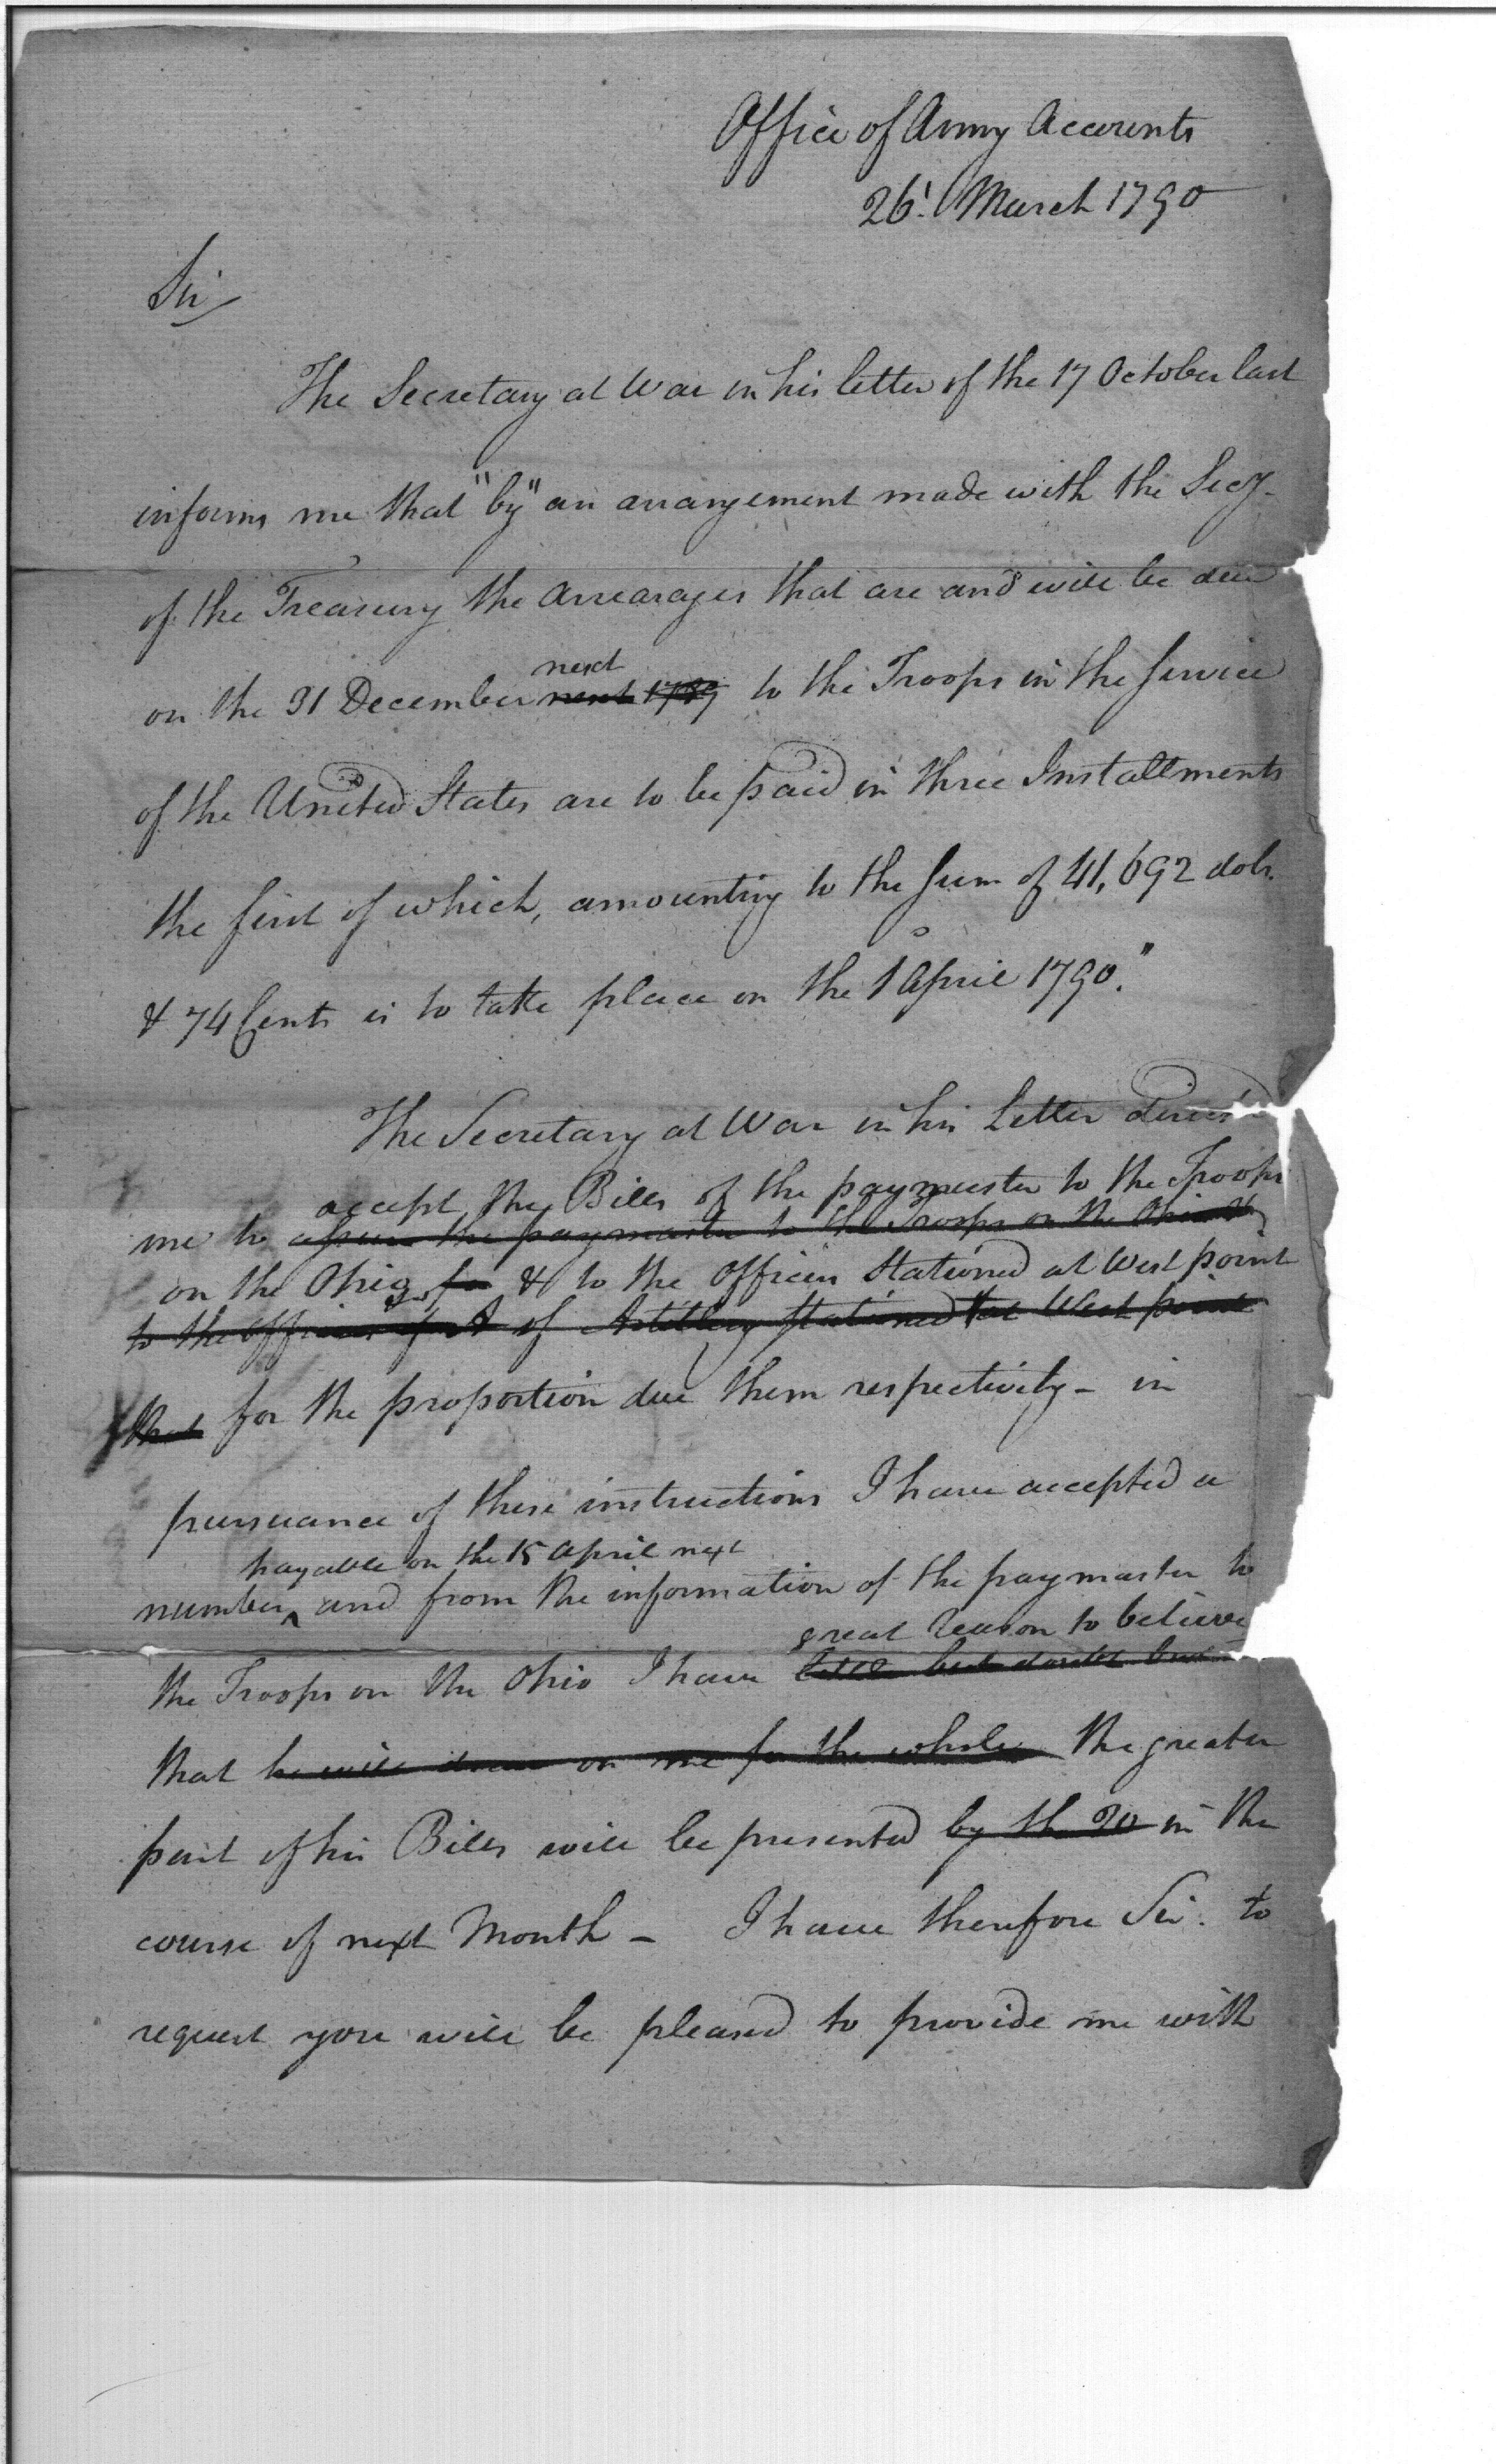 Office of Army Accounts
26. March 1790
Sir
The Secretary at War in his letter of the 17 October last
informs me that "by" an arrangement made with the Secy.
of the Treasury the arrearages that are and will be due
next
on the 31 December next 1789 to the Troops in the service
of the United States are to be paid in three Installments
the first of which, amounting to the sum of 41,692 dolr.
& 74 Cents is to take place on the 1 April 1790."
The Secretary at War in his Letter directs
accept the Bills of the paymaster to the Troops
me to the paymaster to the Troops on the Ohio &
on the Ohio, for & to the officers Stationed at West point
to the officers of A of Artillery stationed at West point
that for the proportion due them respectively - in
pursuance of these instructions I have accepted a
payable on the 15 April next
number, and from the information of the paymaster to
great reason to believe
the Troops on the Ohio I have little but doubt but
that he will draw on me for the whole the greater
part of his Bills will be presented by the 20 in the
course of next Month - I have therefore Sir. to
request you will be pleased to provide me with